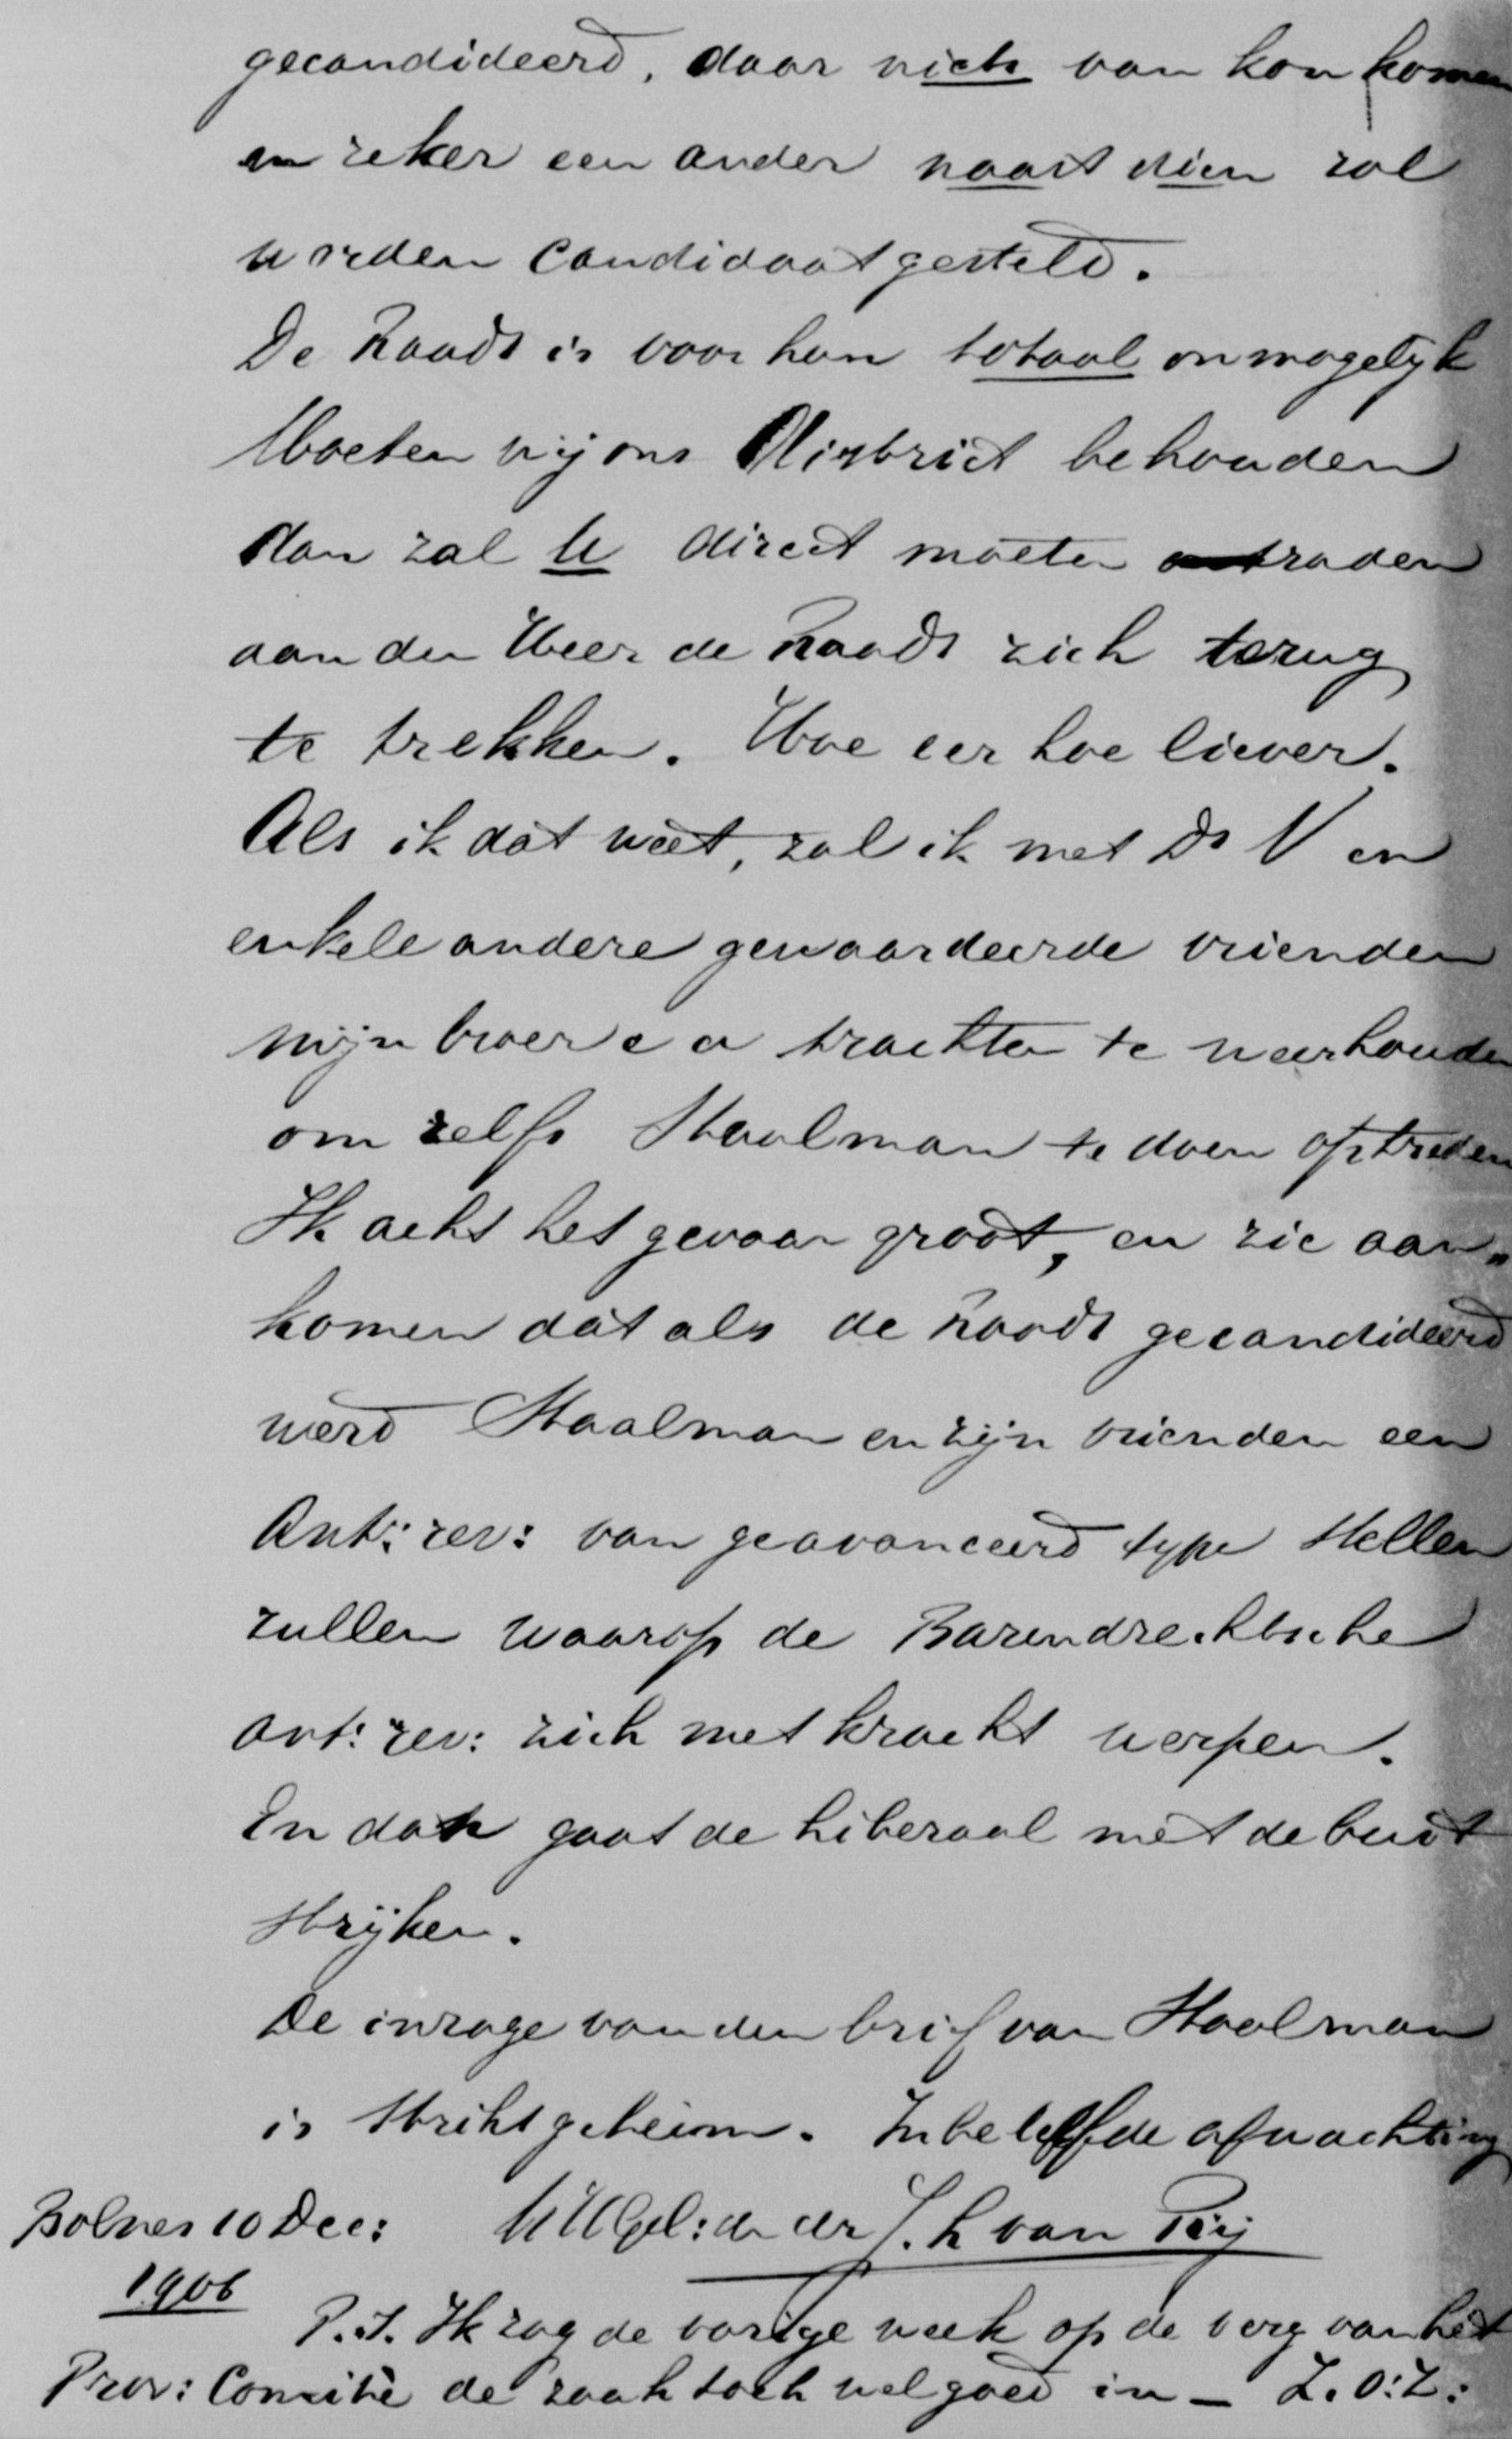 gecandideerd, daar niets van kon komen
en zeker een ander naast dien zal
worden Candidaat gesteld.
De Raadt is voor hen totaal onmogelijk
Moeten wij ons District behouden
dan zal U direct moeten raden
aan den Heer de Raadt zich terug
te trekken. Hoe eer hoe liever.
Als ik dat weet, zal ik met Ds V en
enkele andere gewaardeerde vrienden
mijn broer e a trachten te weerhouden
om zelfs Staalman te doen optreden
Ik acht het gevaar groot, en zie aan„
komen dat als de Raadt gecandideerd
werd Staalman en zijn vrienden een
Ant: rev: van geavanceerd type stellen
zullen waarop de Barendrechtsche
ant: rev: zich met kracht werpen.
En dan gaat de liberaal met de buit
strijken.
De inzage van den brief van Staalman
is strikt geheim. In beleefde afwachting
Bolnes 10 Dec: UwEd: dw dr J. L van Pij
1906
P.S. Ik zag de vorige week op de verg van het
Prov: Comité de zaak toch wel goed in – Z.O.Z: